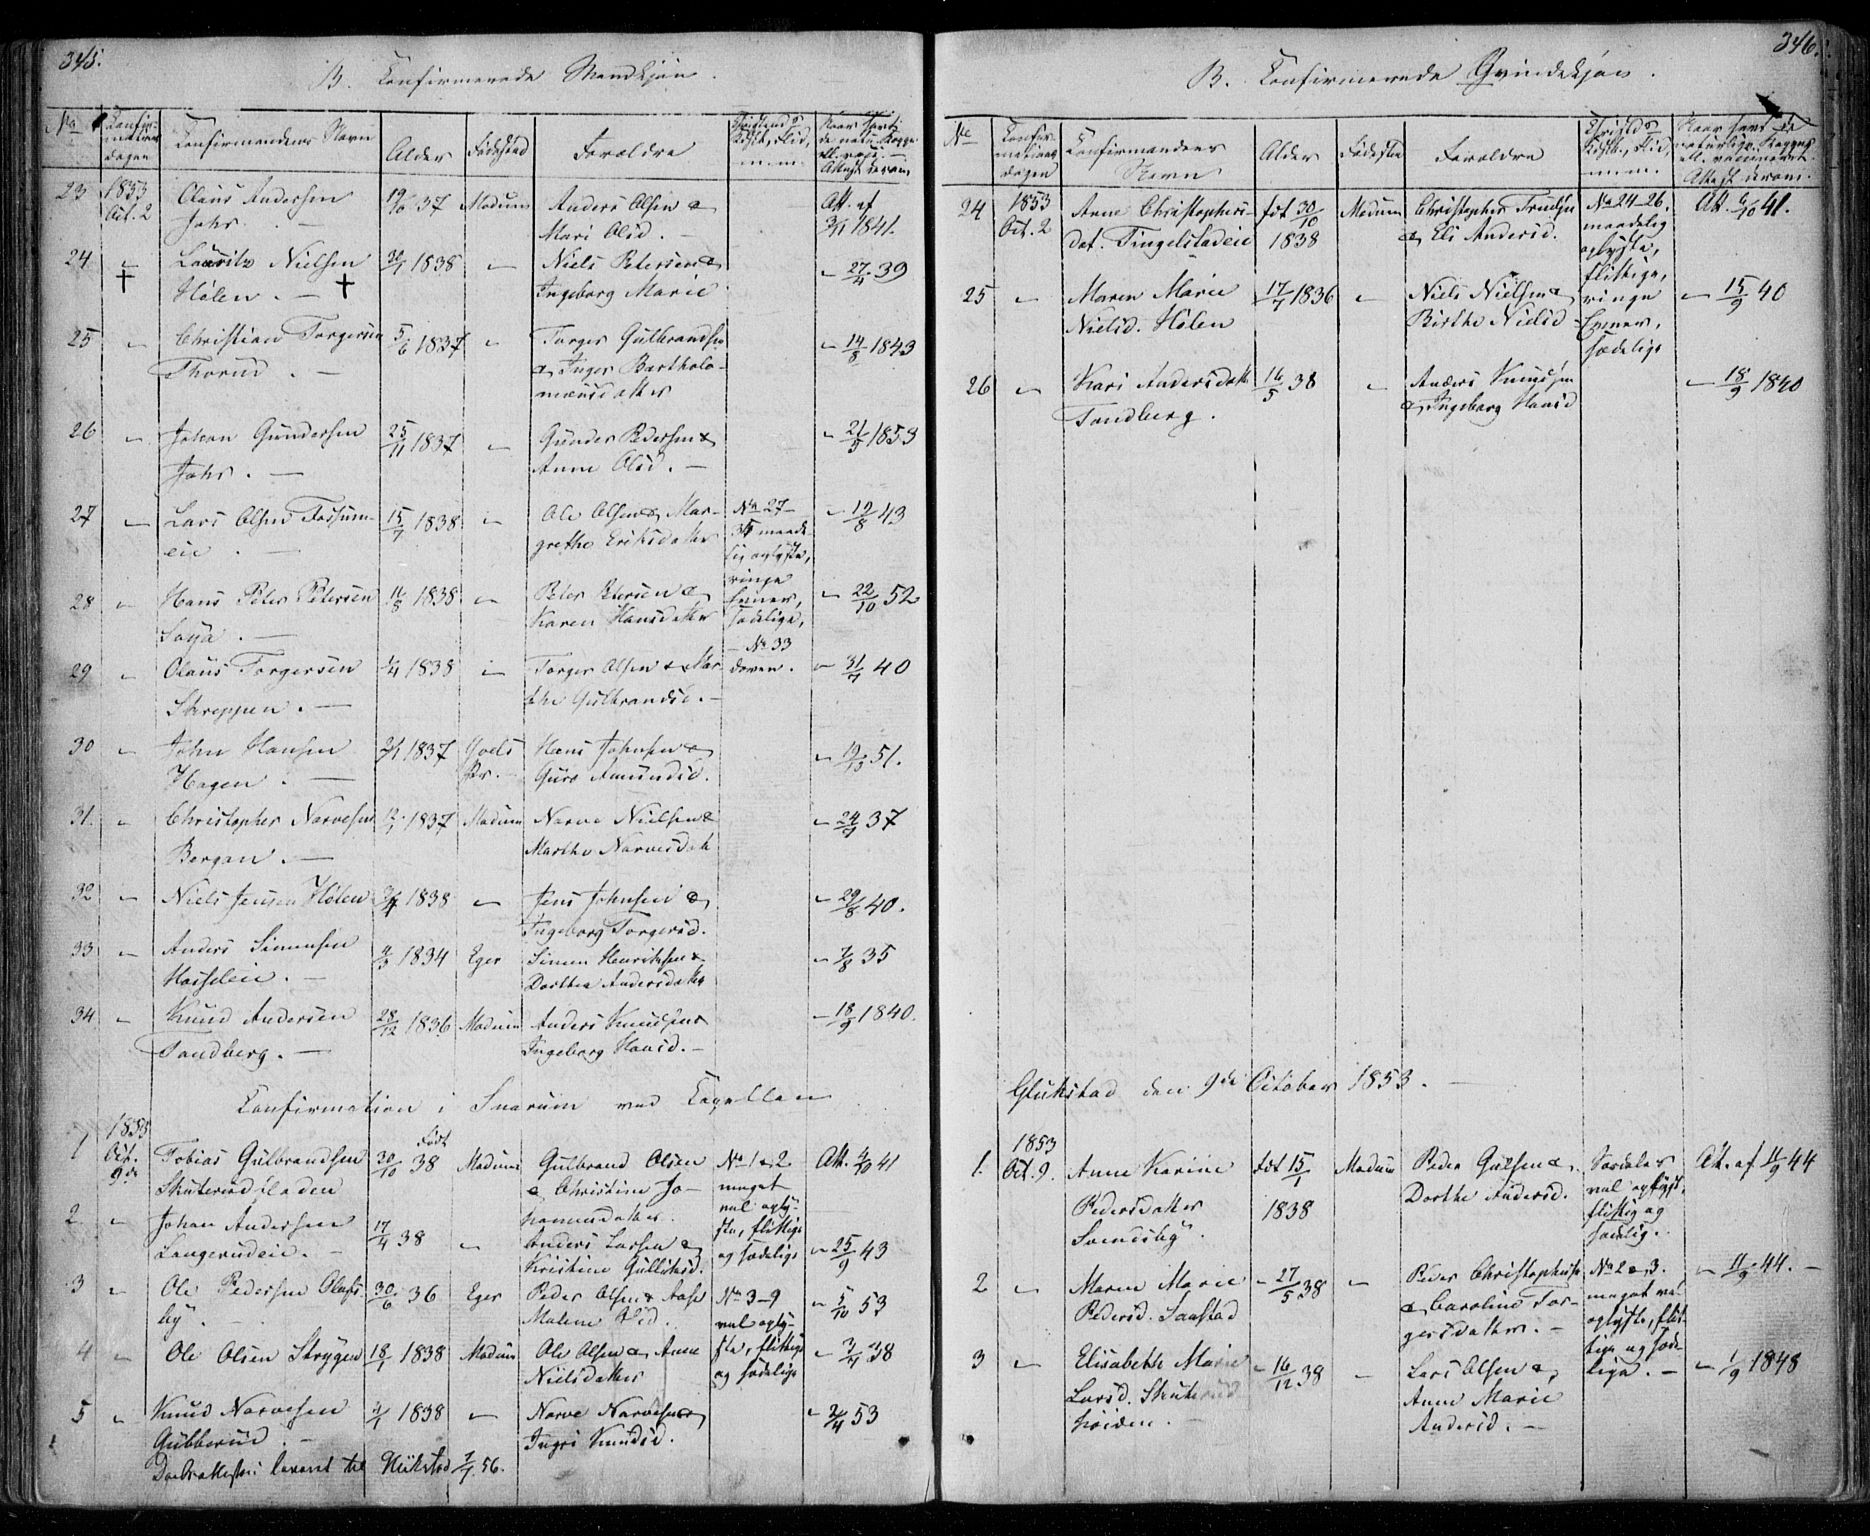 345.
B. Confirmerede Mandkjøn.
No
Confir-
mations
dagen
Confirmandens Navn
Alder
Fødested
Forældre
m.m.
23
1853
Oct. 2
Olaus Andersen
Johs. —
37
Modum
Anders Olsen &
Mari Olsd. —
Att. af
1841.
24
"
Lauritz Nielsen
Hølen. —
†
†
1838
"
Niels Petersen &
Ingeborg Marie
" 27/4 39
25
"
Christian Torgersen
Thorud. —
5/6 1837
"
Torger Gulbrandsen
& Inger Bartholo-
mæusdatter
" 14/8 1843
26
"
Johan Gundersen
Johs. —
25/11 1837
"
Gunder Pedersen &
Anne Olsd. —
" 21/5 1853
27
"
Lars Olsen Fossum-
eie. —
15/7 1838
"
Ole Olsen & Mar-
grethe Eriksdatter
No 27-
34 maade-
lig oplyste,
ringe
Evner,
sædelige,
— No 33
doven.
" 19/8 43
28
"
Hans Peter Petersen
Saga. —
11/8 1838
"
Peter Petersen &
Karen Hansdatter
" 22/10 52
29
"
Olaus Torgersen
Skreppen. —
1/4 1838
"
Torger Olsen & Mar-
the Gulbrandsd. —
" 31/7 40
30
"
John Hansen
Hagen. —
1837
Hans Johnsen &
Guro Amundsd.
51.
31.
"
Christopher Narvesen
Bergan. —
1837
Modum
Narve Nielsen &
Marthe Narvesdatt
37
32
"
Niels Jensen Hølen
1838
"
Jens Johnsen &
Ingeborg Torgersd.
" 29/8 40.
33
"
Anders Simensen
Hasseleie. —
1834
Eger
Simen Henriksen &
Dorthea Andersdatter
" 7/8 35
34
"
Knud Andersen
Sandberg. —
28/12 1836
Modum
Anders Knudsen &
Ingeborg Hansd. —
" 18/9 1840.
Confirmation i Snarum ved Capellan
1
1853
Oct.
9de
Tobias Gulbrandsen
Skuterudfladen
Født
30/10 38
Modum
Gulbrand Olsen
& Christine Jo-
hannesdatter.
No 1 & 2
meget
vel oply-
ste, flittige
og sædelige
Att. 4/10 41
2
"
Johan Andersen
Langerudeie. —
17/4 38
"
Anders Larsen &
Kristine Gulliksd.
" 25/9 43
3
"
Ole Pedersen Olafs-
by. —
30/6 36
Eger
Peder Olsen & Aase
Malene
No 3-9
vel oply-
ste, flittige
og sædelige
" 5/10 53
4
"
Ole Olsen Strygen
18/1 1838
Modum
Ole Olsen & Anne
Nielsdatter
38
5
"
Knud Narvesen
Gubberud. —
1838
"
Narve Narvesen &
Ingri Knudsd.
" 2/4 53
Daabsattesten leveret til
56.
346.
B. Confirmerede Qvindekjøn.
No
Confir-
mations
dagen
Confirmandens
Navn
Alder
Fødested
Forældre
m.m.
24
1853
Oct. 2
Anne Christophers-
dat. Tingelstadeie
født 30/10
1838
Modum
Christopher Truls
& Eli Andersd.
No 24-26.
maadelig
oplyste,
flittige,
ringe
Evner,
sædelige
Att. 6/10 41.
25
"
Maren Marie
Nielsd. Hølen
17/7 1836
"
Niels Nielsen &
Birthe Nielsd
" 15/9 40
26
"
Kari Andersdatt
Sandberg.
16/5 38
"
Anders Knudsen
& Ingeborg Hansd
" 18/9 1840
Glukstad den 9de October 1853. —
1.
1853
Oct. 9.
Anne Karine
Pedersdatter
født 15/1
1838
Modum
Peder
Dorthe Andersd.
Særdeles
vel oplyst,
flittig og
sædelig.
Att. af 11/9 44
2
"
Maren Marie
Pedersd. Saastad
" 27/5 38
"
Peder Christophersen
& Caroline Tor-
gersdatter. —
No 2 & 3.
meget vel
oplyste, flit-
tige og sæde-
lige. —
" 11/9 44. —
3
"
Elisabeth Marie
Larsd. Skuterud
" 16/12 38
"
Lars Olsen &
Anne Marie
Andersd. —
" 1/9 1848